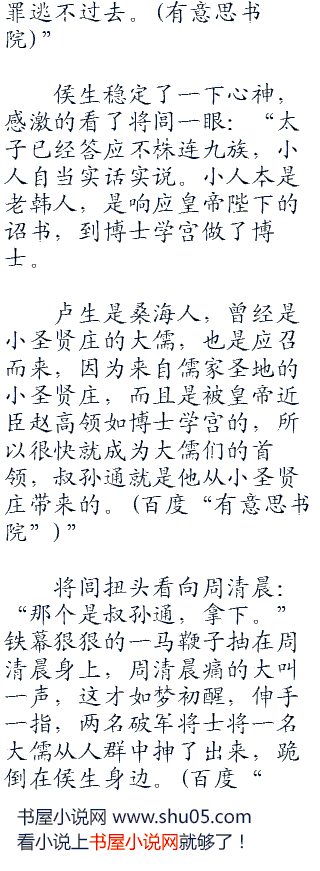 罪逃不过去。(有意思书
院)”
侯生稳定了一下心神，
感激的看了将闾一眼：“太
子已经答应不株连九族，小
人自当实话实说。小人本是
老韩人，是响应皇帝陛下的
诏书，到博士学宫做了博
士。
卢生是桑海人，曾经是
小圣贤庄的大儒，也是应召
而来，因为来自儒家圣地的
小圣贤庄，而且是被皇帝近
臣赵高领如博士学宫的，所
以很快就成为大儒们的首
领，叔孙通就是他从小圣贤
庄带来的。(百度“有意思书
院”)”
将闾扭头看向周清晨：
“那个是叔孙通，拿下。”
铁幕狠狠的一马鞭子抽在周
清晨身上，周清晨痛的大叫
一声，这才如梦初醒，伸手
一指，两名破军将士将一名
大儒从人群中抻了出来，跪
倒在侯生身边。(百度“
书屋小说网 www.shu05.com
看小说上书屋小说网就够了！